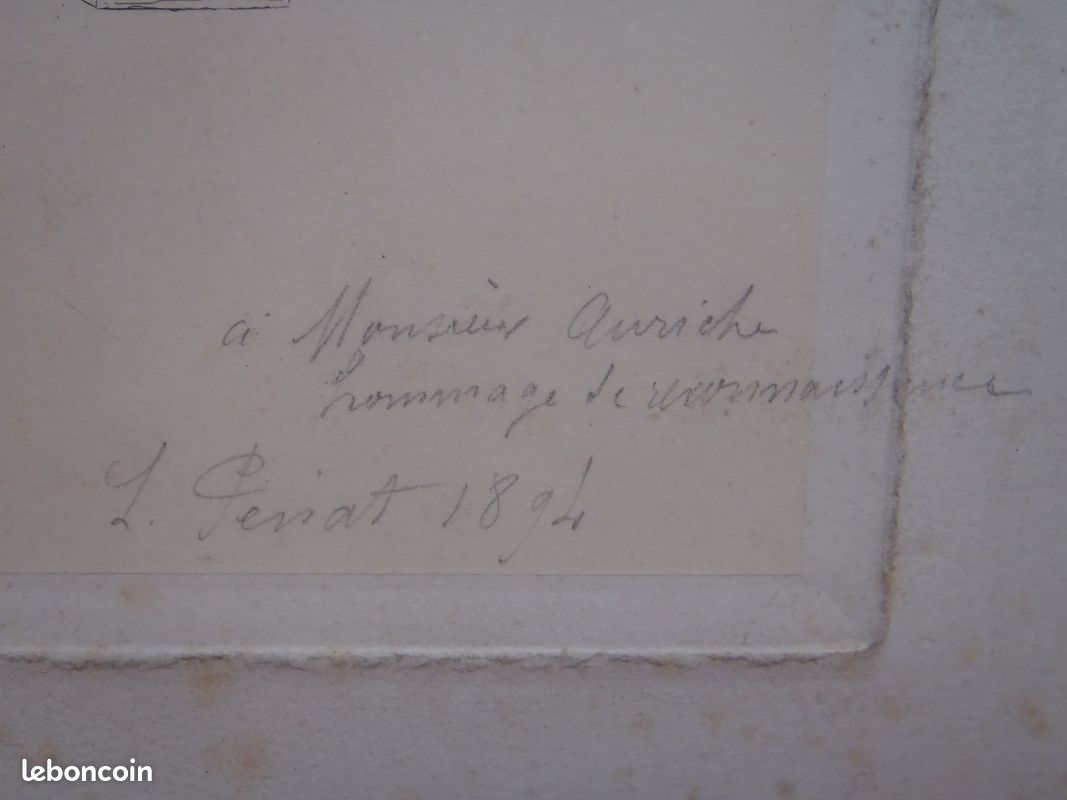 à Monsieur Auriche
hommage de reconnaissance
L. Penat 1894
leboncoin